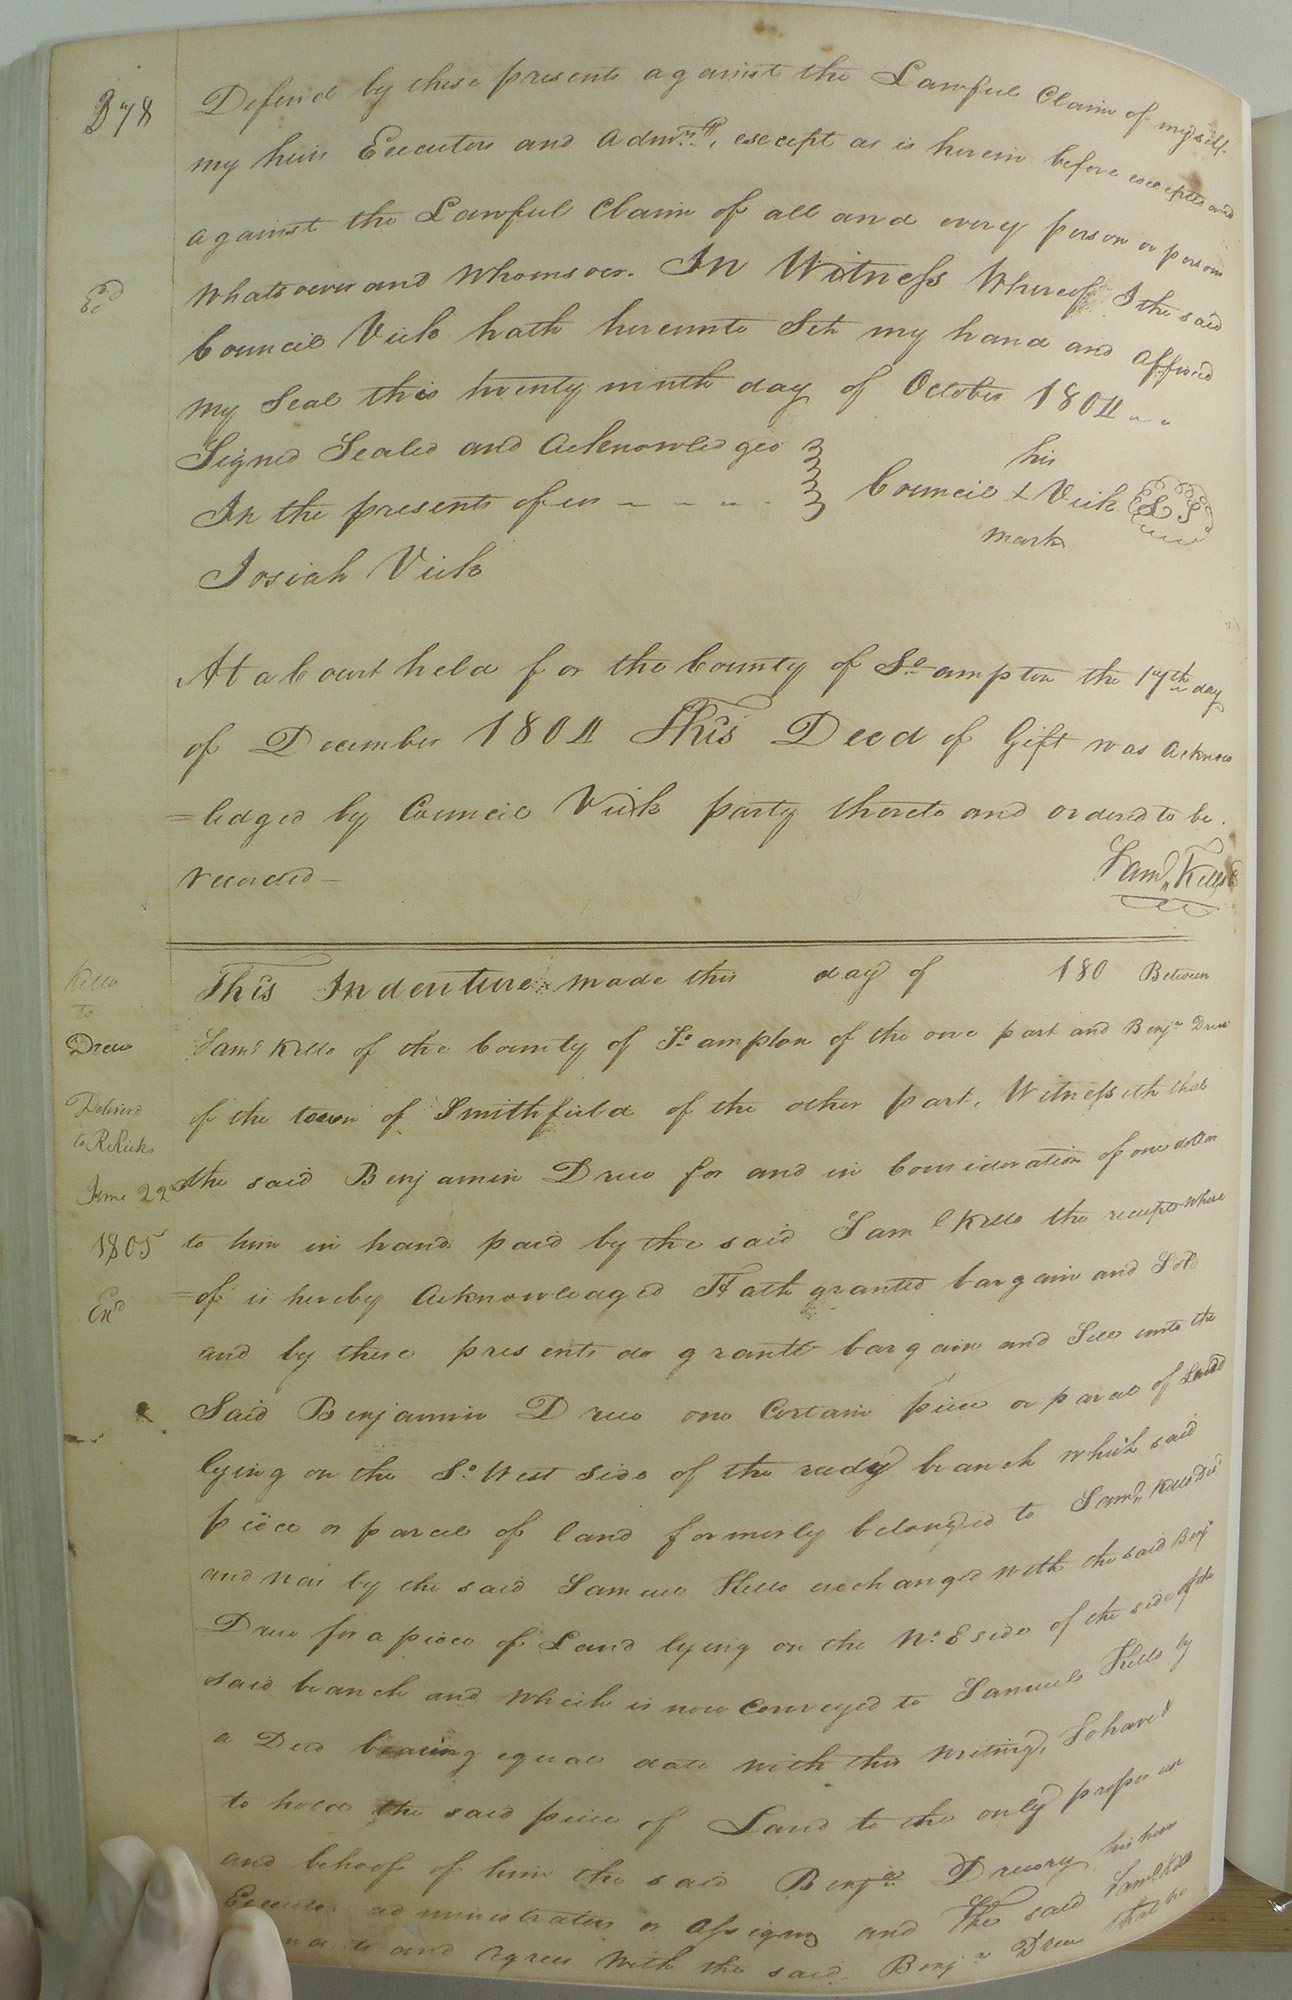 378
Defend by these presents against the Lawful Claim of myself
my heirs Executors and Admrs, except as is herein before excepted and
against the Lawful Claim of all and every person or persons
Whatsoever and Whomsoever. In Witness Whereof I the said
Exd
Council Vick hath hereunto Set my hand and affixed
my Seal this twenty ninth day of October 1804
Signed Sealed and Acknowledged
In the presents of us
his
Council + Vick LS
mark
Josiah Vick
At a Court held for the County of So.ampton the 17th day
of December 1804 This Deed of Gift was Acknow
=ledged by Council Vick party thereto and ordered to be
recorded
Saml. Kello
Kello
to
Drew
Deliverd
to R Ricks
June 22d
1805
Exd
This Indenture made this day of 180 Between
Saml Kello of the County of So.ampton of the one part and Benja Drew
of the town of Smithfield of the other part, Witnesseth that
the said Benjamin Drew for and in Consideration of one dollar
to him in hand paid by the said Saml Kello the receipt where
=of is hereby Acknowledged Hath granted bargain and Sold
and by these presents do grantt bargain and Sell unto the
Said Benjamin Drew one Certain piece or parcel of Land
lying on the So. West Side of the reedy branch which said
piece or parcel of land formerly belonged to Saml. Kello Decd
and was by the said Samuel Kello exchanged with the said Benja
Drew for a piece of Land lying on the No. E side of the side of the
said branch and which is now Conveyed to Samuel Kello by
a Deed bearing equal date with this writing, To have &
to hold the said piece of Land to the only proper use
and behoof of him the said Benja Drewry his heirs
Executors administrators or Assigns and the said Saml Kello
and agrees with the said Benja Drew that he